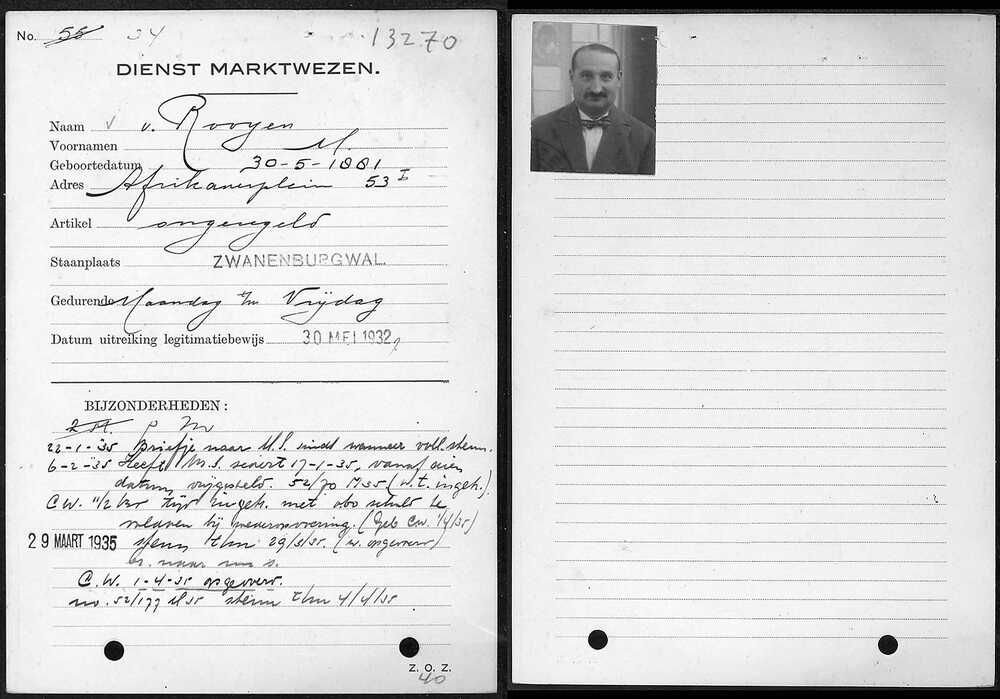 No. 55 54 13270
DIENST MARKTWEZEN.
Naam v. Rooyen
Voornamen M.
Geboortedatum 30-5-1881
Adres Afrikanerplein 53 I
Artikel ongeregeld
Staanplaats ZWANENBURGWAL.
Gedurende Maandag t/m Vrijdag
Datum uitreiking legitimatiebewijs 30 MEI 1932
BIJZONDERHEDEN:
22-1-35 Briefje naar M.S. sinds wanneer voll. steun.
6-2-35 Heeft M.S. sedert 17-1-35, vanaf dien
datum vrijgesteld. 52/70 M35 (w.t. ingeh.)
C.W. 1/2 tijd ingeh. met obo schuld te
bij wederopvoering. (Geb CW. 1/4/35)
29 MAART 1935 steun t/m 29/3/35. (w. opgevoerd)
naar m.s.
C.W. 1-4-35 opgevoerd.
no. 52/177 M35 steun t/m 4/4/35
Z. O. Z.
40